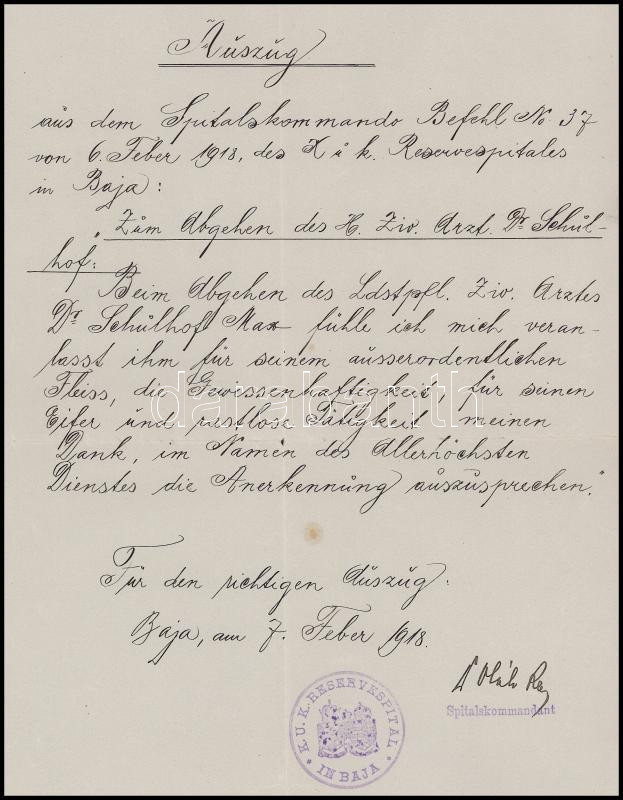 Auszug
aus dem Spitalskommando Befehl No. 37
von 6. Feber 1918, des K u k. Reservespitales
in Baja:
"Zum Abgehen des H. Ziv. Arzt. Dr Schul-
hof:
Beim Abgehen des Ldstpfl. Ziv. Arztes
Dr Schulhof Max fühle ich mich veran-
lasst ihm für seinem ausserordentlichen
Fleiss, die Gewissenhaftigkeit, für seinen
Eifer und rastlose Tätigkeit meinen
Dank, im Namen des Allerhöchsten
Dienstes die Anerkennung auszusprechen."
Für den richtigen Auszug:
Baja, am 7. Feber 1918.
Dr
Spitalskommandant
K.U.K. RESERVESPITAL
IN BAJA
darabanth